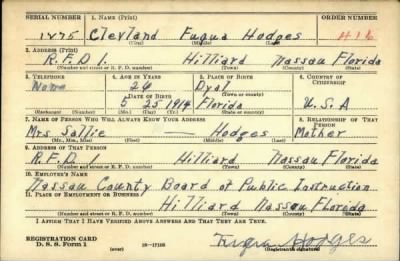 SERIAL NUMBER 1. NAME (Print) ORDER NUMBER
1275 Clevland Fuqua Hodges
(First) (Middle) (Last)
2. ADDRESS (Print)
R.F.D 1. Hilliard Nassau Florida
(Number and street or R. F. D. number) (Town) (County) (State)
3. TELEPHONE 4. AGE IN YEARS 5. PLACE OF BIRTH 6. COUNTRY OF CITIZENSHIP
None 26 Dyal
DATE OF BIRTH (Town or county)
5 25 1914 Florida U.S.A
(Exchange) (Number) (Mo.) (Day) (Yr.) (State or country)
7. NAME OF PERSON WHO WILL ALWAYS KNOW YOUR ADDRESS 8. RELATIONSHIP OF THAT PERSON
Mrs Sallie — Hodges Mother
(Mr., Mrs., Miss) (First) (Middle) (Last)
9. ADDRESS OF THAT PERSON
R.F.D 1 Hilliard Nassau Florida
(Number and street or R. F. D. number) (Town) (County) (State)
10. EMPLOYER'S NAME
Nassau County Board of Public Instruction
11. PLACE OF EMPLOYMENT OR BUSINESS
Hilliard Nassau Florida
(Number and street or R. F. D. number) (Town) (County) (State)
I AFFIRM THAT I HAVE VERIFIED ABOVE ANSWERS AND THAT THEY ARE TRUE.
REGISTRATION CARD
D. S. S. Form 1 (over) Fuqua Hodges
(Registrant's signature)